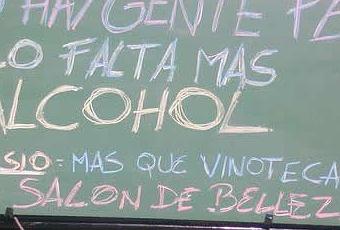 HAY GENTE
LO FALTA MAS
ALCOHOL
SIO: MAS QUE VINOTECA
SALON DE BELLEZ